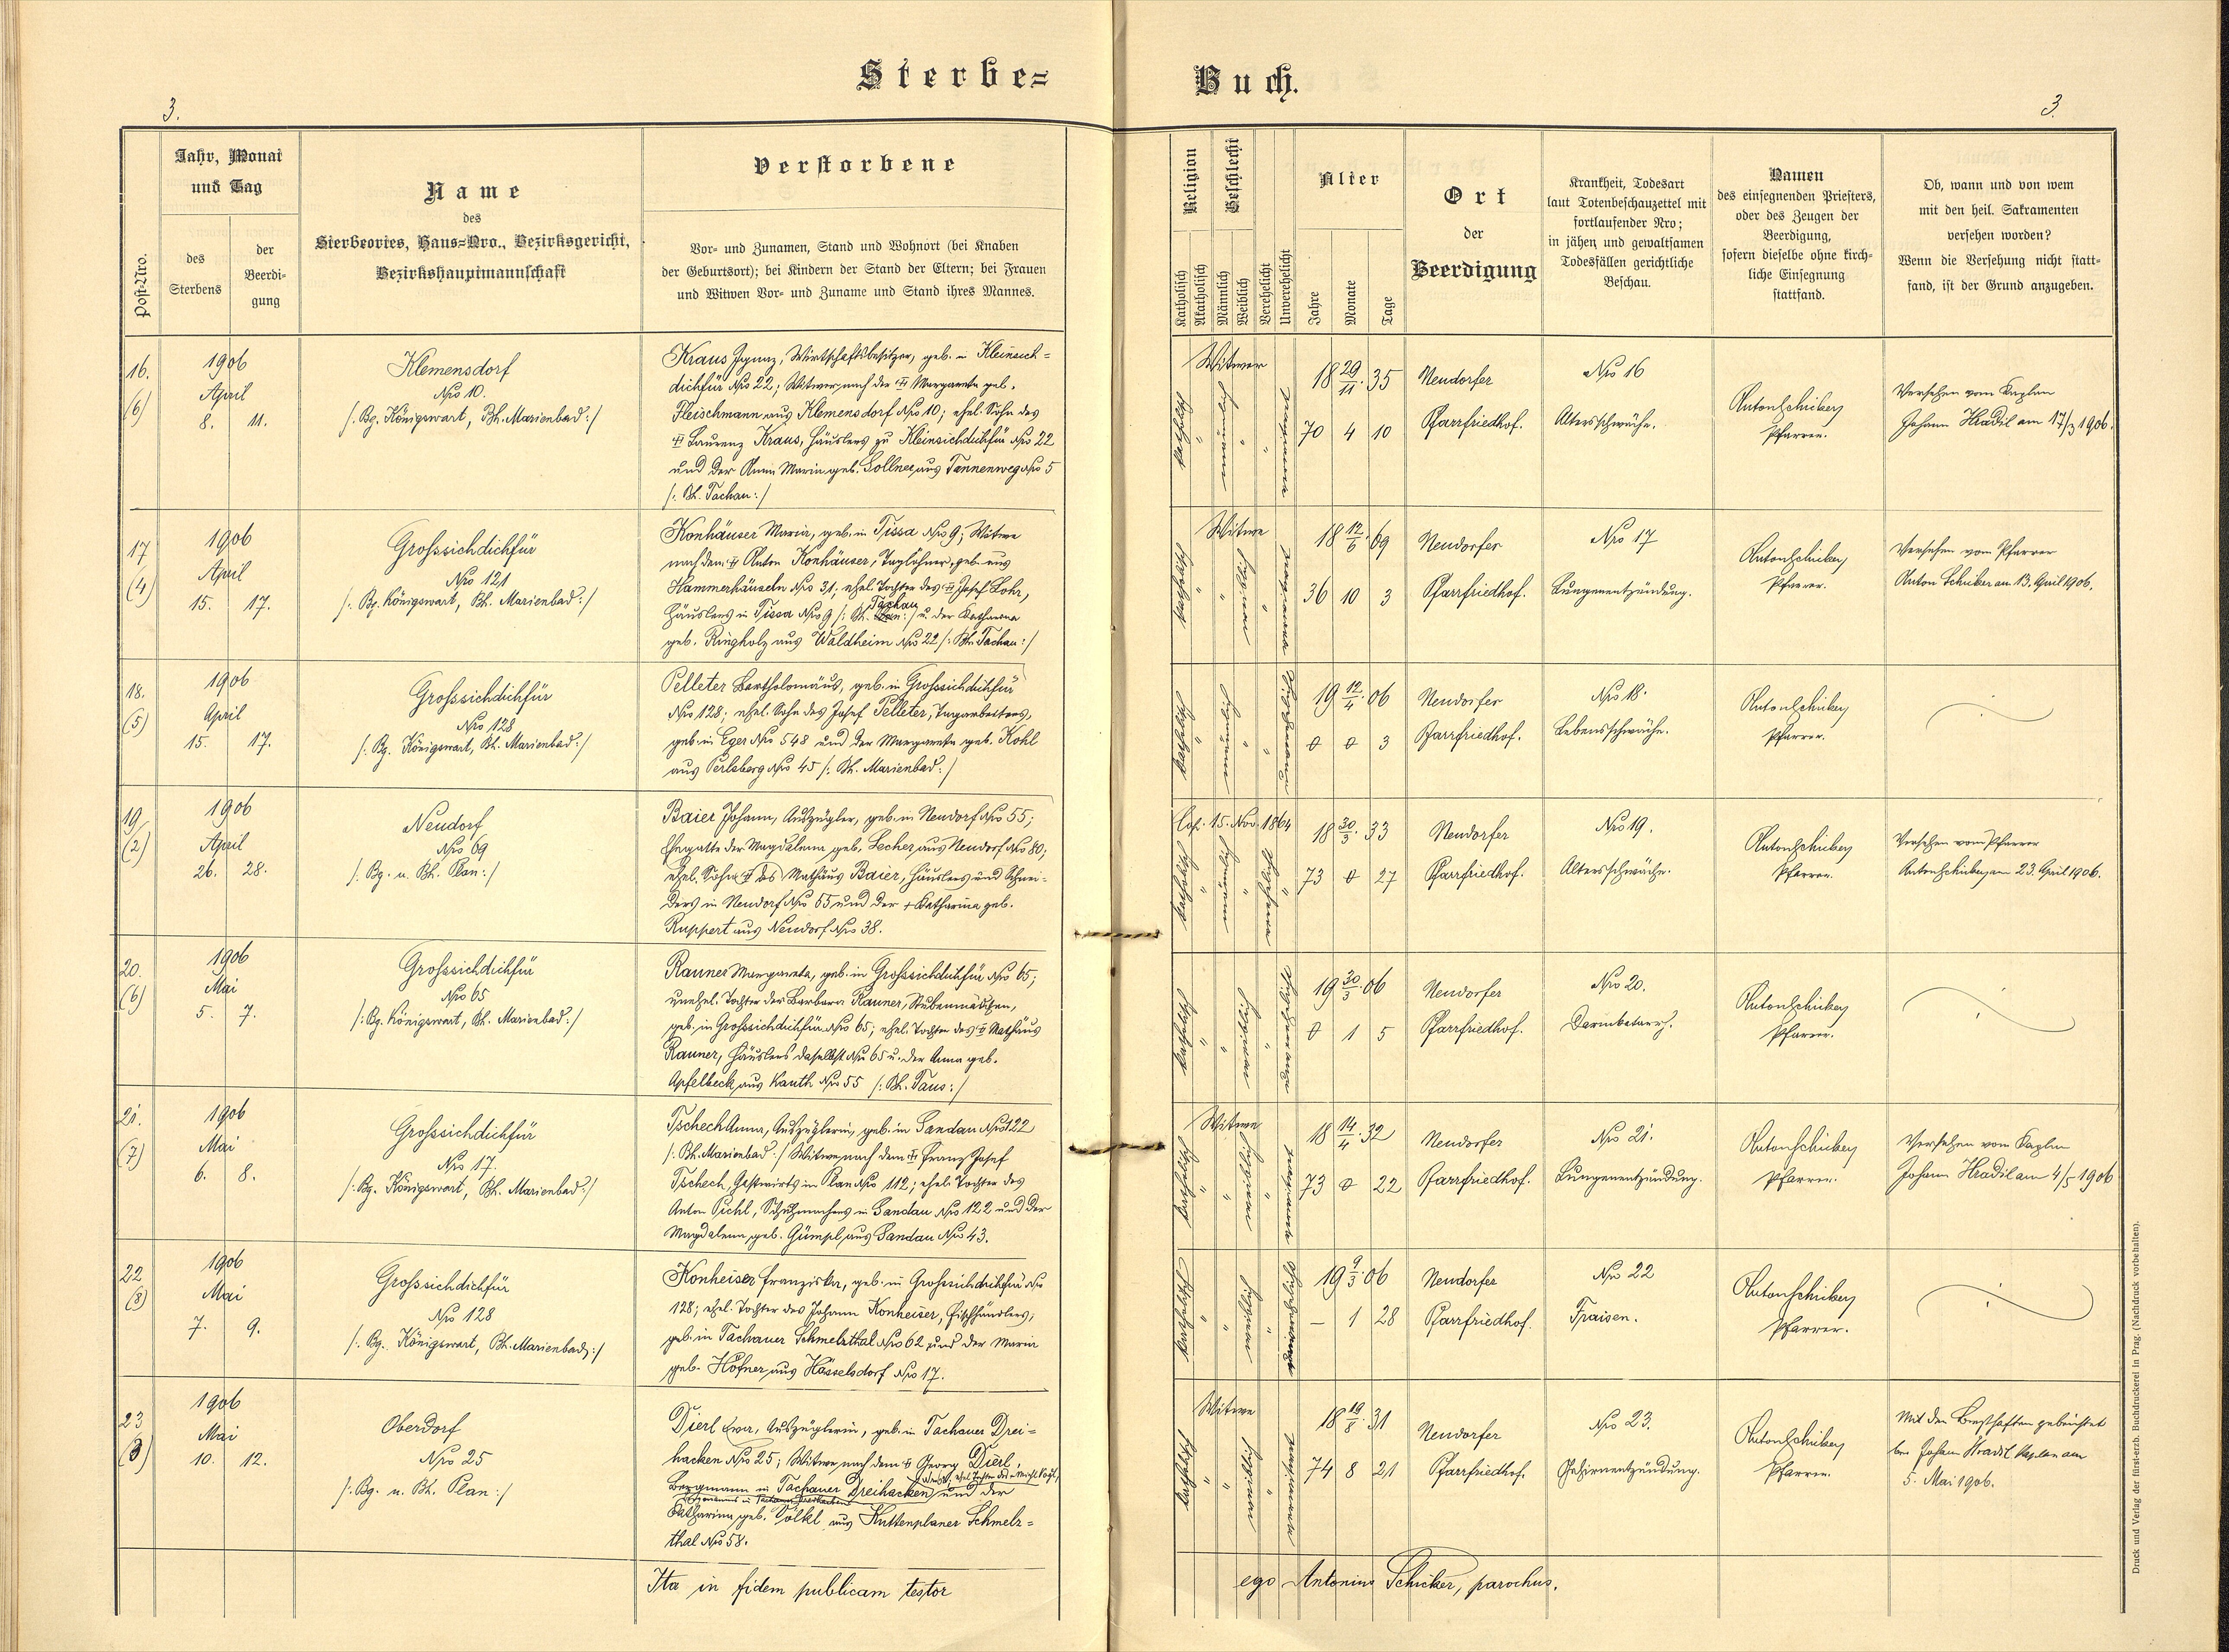 Sterbe= Buch.
3.
3.
Post-Nro.
Jahr, Monat
und Tag
des
Sterbens
der
Beerdi-
gung
Name
des
Sterbeortes, Haus=Nro., Bezirksgericht,
Bezirkshauptmannschaft
Verstorbene
Vor- und Zunamen, Stand und Wohnort (bei Knaben
der Geburtsort); bei Kindern der Stand der Eltern; bei Frauen
und Witwen Vor- und Zuname und Stand ihres Mannes.
Religion
Katholisch
Akatholisch
Geschlecht
Männlich
Weiblich
Verehelicht
Unverehelicht
Alter
Jahre
Monate
Tage
Ort
der
Beerdigung
Krankheit, Todesart
laut Totenbeschauzettel mit
fortlaufender Nro;
in jähen und gewaltsamen
Todesfällen gerichtliche
Beschau.
Namen
des einsegnenden Priesters,
oder des Zeugen der
Beerdigung,
sofern dieselbe ohne kirch-
liche Einsegnung
stattfand.
Ob, wann und von wem
mit den heil. Sakramenten
versehen worden?
Wenn die Versehung nicht statt-
fand, ist der Grund anzugeben.
16.
(6)
1906
April
8. 11.
Klemensdorf
Nro 10.
/: Bg. Königswart, Bh. Marienbad :/
Kraus Ignaz, Wirtschaftsbesitzer, geb. in Kleinsich=
dichfür Nro 22; Witwer nach der † Margareta geb.
Fleischmann aus Klemensdorf Nro 10; ehel. Sohn des
† Laurenz Kraus, Häuslers zu Kleinsichdichfür Nro 22
und der Anna Maria geb. Sollner aus Tannenweg Nro 5
/: Bh. Tachau :/
Witwer
katholisch
"
männlich
"
"
18 29/11. 35
70 4 10
Neudorfer
Pfarrfriedhof.
Nro 16
Altersschwäche.
Anton Schicker
Pfarrer.
Versehen vom Kaplan
Johann Hradil am 17/3 1906.
17
(4)
1906
April
15. 17.
Grosssichdichfür
Nro 121
/: Bg. Königswart, Bh. Marienbad :/
Konhäuser Maria, geb. in Tissa Nro 9; Witwe
nach dem † Anton Konhäuser, Taglöhner, geb. aus
Hammerhäuseln Nro 31; ehel. Tochter des † Josef Lohr,
Tachau
Häuslers in Tissa Nro 9 /: Bh. :/ u. der Katharina
geb. Ringholz aus Waldheim Nro 22 /: Bh. Tachau :/
Witwe
katholisch
"
"
weiblich
"
18 12/6. 69
36 10 3
Neudorfer
Pfarrfriedhof.
Nro 17
Lungenentzündung.
Anton Schicker
Pfarrer.
Versehen vom Pfarrer
Anton Schicker am 13. April 1906.
18.
(5)
1906
April
15. 17.
Grosssichdichfür
Nro 128
/: Bg. Königswart, Bh. Marienbad :/
Pelleter Bartholomäus, geb. in Grosssichdichfür
Nro 128; ehel. Sohn des Josef Pelleter, Tagarbeiters,
geb. in Eger Nro 548 und der Margareta geb. Kohl
aus Perlsberg Nro 45 /: Bh. Marienbad :/
katholisch
"
männlich
"
"
19 12/4. 06
0 0 3
Neudorfer
Pfarrfriedhof.
Nro 18.
Lebensschwäche.
Anton Schicker
Pfarrer.
19
(2)
1906
April
26. 28.
Neudorf
Nro 69
/: Bg. u. Bh. Plan :/
Baier Johann, Auszügler, geb. in Neudorf Nro 55;
Ehegatte der Magdalena geb. Lecher aus Neudorf Nro 80;
ehel. Sohn † des Mathäus Baier, Häuslers und Schnei-
ders in Neudorf Nro 55 und der + Katharina geb.
Ruppert aus Neudorf Nro 38.
Cop. 15. Nov. 1864
katholisch
"
männlich
"
18 30/3. 33
73 0 27
Neudorfer
Pfarrfriedhof.
Nro 19.
Altersschwäche.
Anton Schicker
Pfarrer.
Versehen vom Pfarrer
Anton Schicker am 23. April 1906.
20.
(6)
1906
Mai
5. 7.
Grosssichdichfür
Nro 65
/: Bg. Königswart, Bh. Marienbad :/
Rauner Margareta, geb. in Grosssichdichfür Nro 65;
unehel. Tochter der Barbara Rauner, Stubenmädchen,
geb. in Grosssichdichfür Nro 65; ehel. Tochter des † Mathäus
Rauner, Häuslers daselbst Nro 65 u. der Anna geb.
Apfelbeck aus Kauth Nro 55 /: Bh. Taus :/
katholisch
"
"
weiblich
"
19 30/3. 06
0 1 5
Neudorfer
Pfarrfriedhof.
Nro 20.
Darmkatarrh.
Anton Schicker
Pfarrer.
21.
(7)
1906
Mai
6. 8.
Grosssichdichfür
Nro 17.
/: Bg. Königswart, Bh. Marienbad :/
Tschech Anna, Auszüglerin, geb. in Sandau Nro 122
/: Bh. Marienbad :/ Witwe nach dem † Franz Josef
Tschech, Gastwirts in Plan Nro 112; ehel. Tochter des
Anton Pichl, Schuhmachers in Sandau Nro 122 und der
Magdalena, geb. Gümpl aus Sandau Nro 43.
Witwe
katholisch
"
"
weiblich
"
18 14/4. 32
73 0 22
Neudorfer
Pfarrfriedhof.
Nro 21.
Lungenentzündung.
Anton Schicker
Pfarrer.
Versehen vom Kaplan
Johann Hradil am 4/5 1906
22
(8)
1906
Mai
7. 9.
Grosssichdichfür
Nro 128
/: Bg. Königswart, Bh. Marienbad :/
Konheiser Franziska, geb. in Grosssichdichfür Nro
128; ehel. Tochter des Johann Konheiser, Fischhändlers,
geb. in Tachauer Schmelzthal Nro 62 und der Maria
geb. Höfner aus Hässelsdorf Nro 17.
katholisch
"
"
weiblich
"
19 9/3. 06
— 1 28
Neudorfer
Pfarrfriedhof.
Nro 22
Fraisen.
Anton Schicker
Pfarrer.
23
(3)
1906
Mai
10. 12.
Oberdorf
Nro 25
/: Bg. u. Bh. Plan :/
Dierl Eva, Auszüglerin, geb. in Tachauer Drei=
hacken Nro 25; Witwe nach dem † Georg Dierl,
Bergmann in Tachauer Dreihacken und der
Katharina geb. Völkl aus Kuttenplaner Schmelz=
thal Nro 58.
Witwe
katholisch
"
"
weiblich
"
18 19/8. 31
74 8 21
Neudorfer
Pfarrfriedhof.
Nro 23.
Gehirnentzündung.
Anton Schicker
Pfarrer.
Mit den
Johann Hradil Kaplan am
5. Mai 1906.
Ita in fidem publicam testor ego Antonius Schicker, parochus.
Druck und Verlag der fürst-erzb. Buchdruckerei in Prag. (Nachdruck vorbehalten).